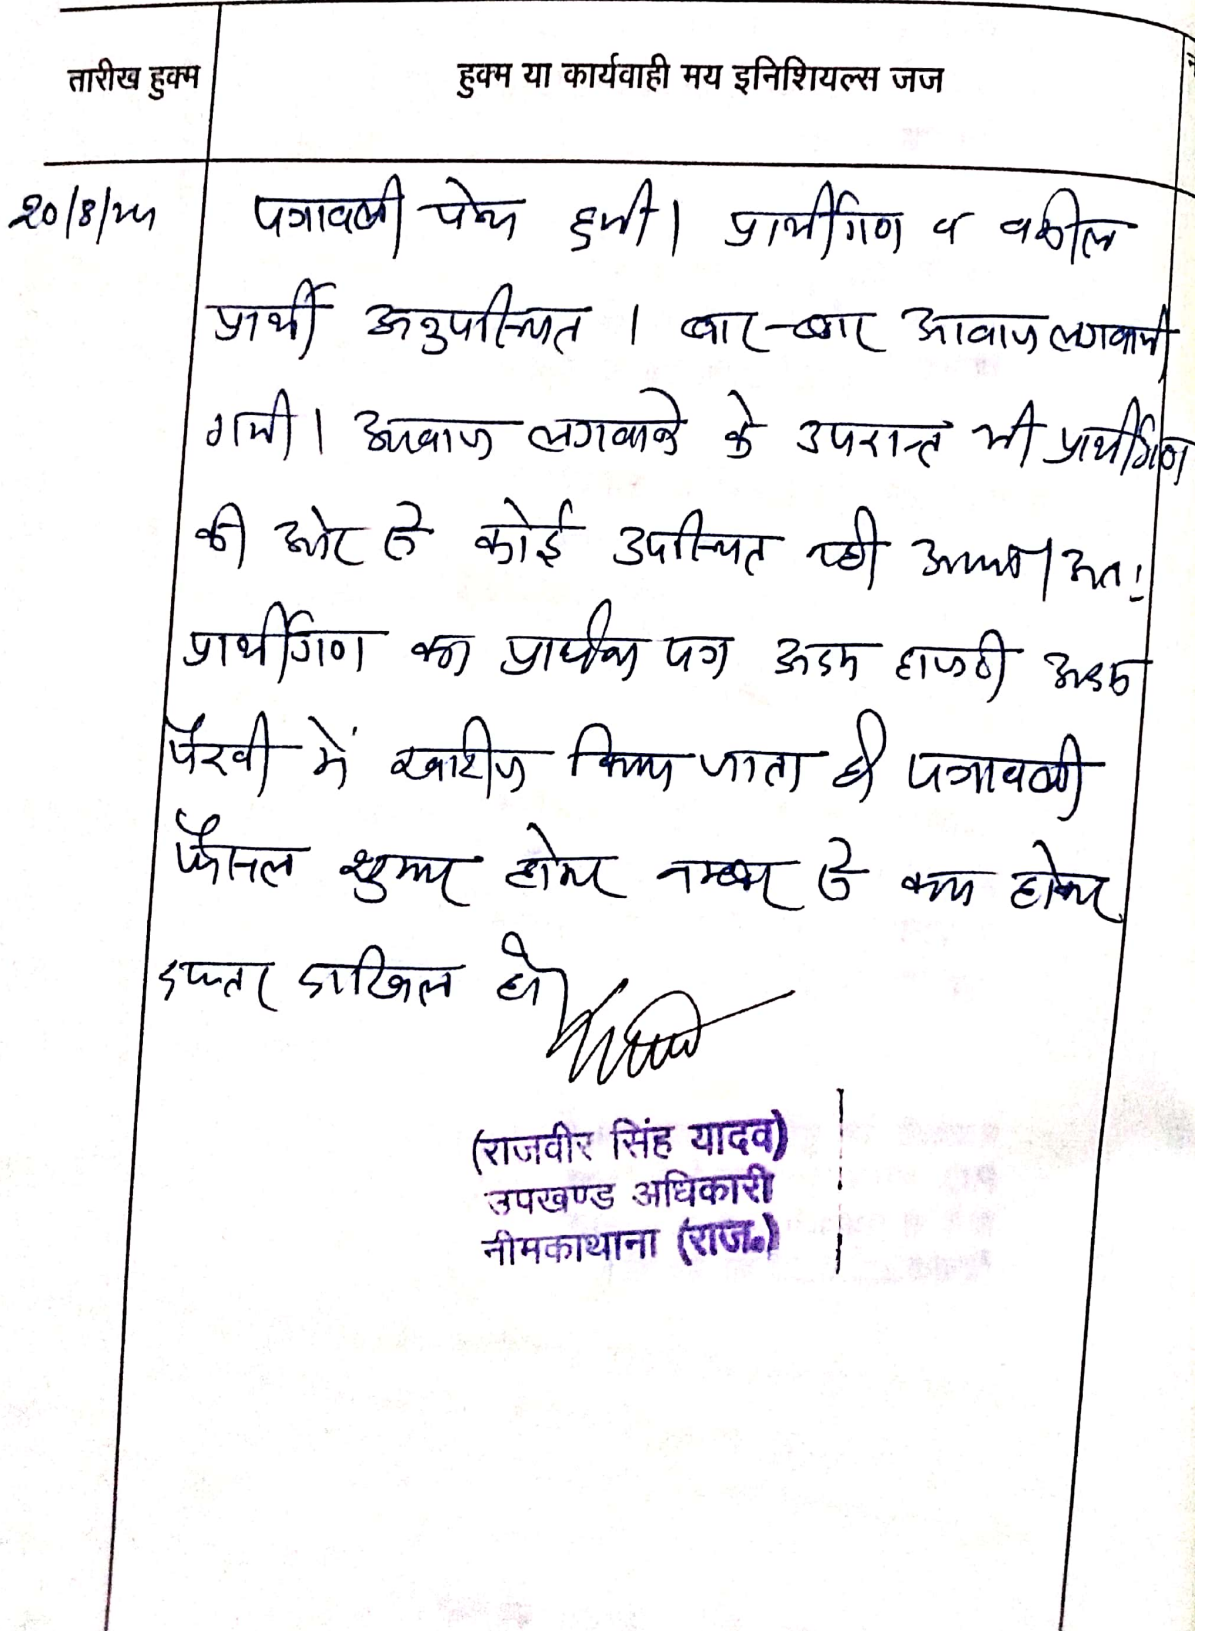 तारीख हुक्म
हुक्म या कार्यवाही मय इनिशियल्स जज
पत्रावली पेश हुयी। प्रार्थीगण व वकील
प्रार्थी अनुपस्थित । बार-बार आवाज लगवायी
गयी। आवाज लगवाने के उपरान्त भी प्रार्थीगण
की ओर से कोई उपस्थित नही आया। अतः
प्रार्थीगण का प्रार्थना पत्र अदम हाजरी अदम
पैरवी में खारीज किया जाता है। पत्रावली
फैसल शुमार होकर नम्बर से कम होकर
दफ्तर दाखिल हो।
(राजवीर सिंह यादव)
उपखण्ड अधिकारी
नीमकाथाना (राज.)